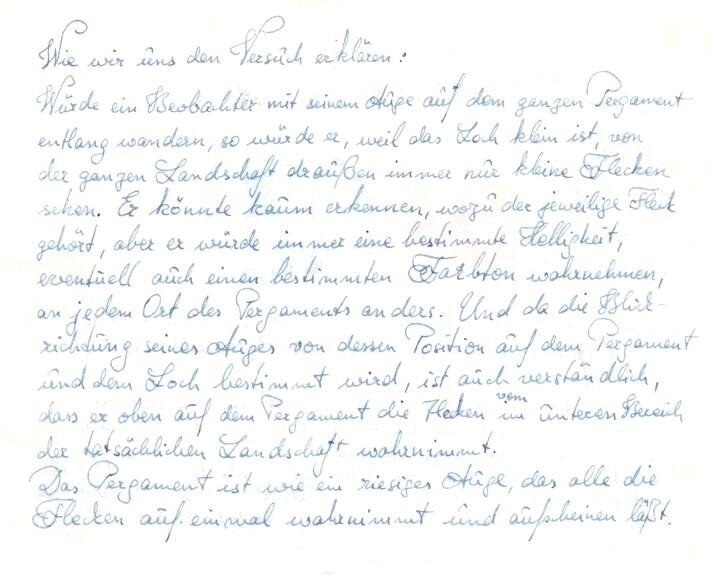 Wie wir uns den Versuch erklären:
Würde ein Beobachter mit seinem Auge auf dem ganzen Pergament
entlang wandern, so würde er, weil das Loch klein ist, von
der ganzen Landschaft draußen immer nur kleine Flecken
sehen. Er könnte kaum erkennen, wozu der jeweilige Fleck
gehört, aber er würde immer eine bestimmte Helligkeit,
eventuell auch einen bestimmten Farbton wahrnehmen,
an jedem Ort des Pergaments anders. Und da die Blick-
richtung seines Auges von dessen Position auf dem Pergament
und dem Loch bestimmt wird, ist auch verständlich,
dass er oben auf dem Pergament die Flecken vom unteren Bereich
der tatsächlichen Landschaft wahrnimmt.
Das Pergament ist wie ein riesiges Auge, das alle die
Flecken auf einmal wahrnimmt und aufscheinen läßt.